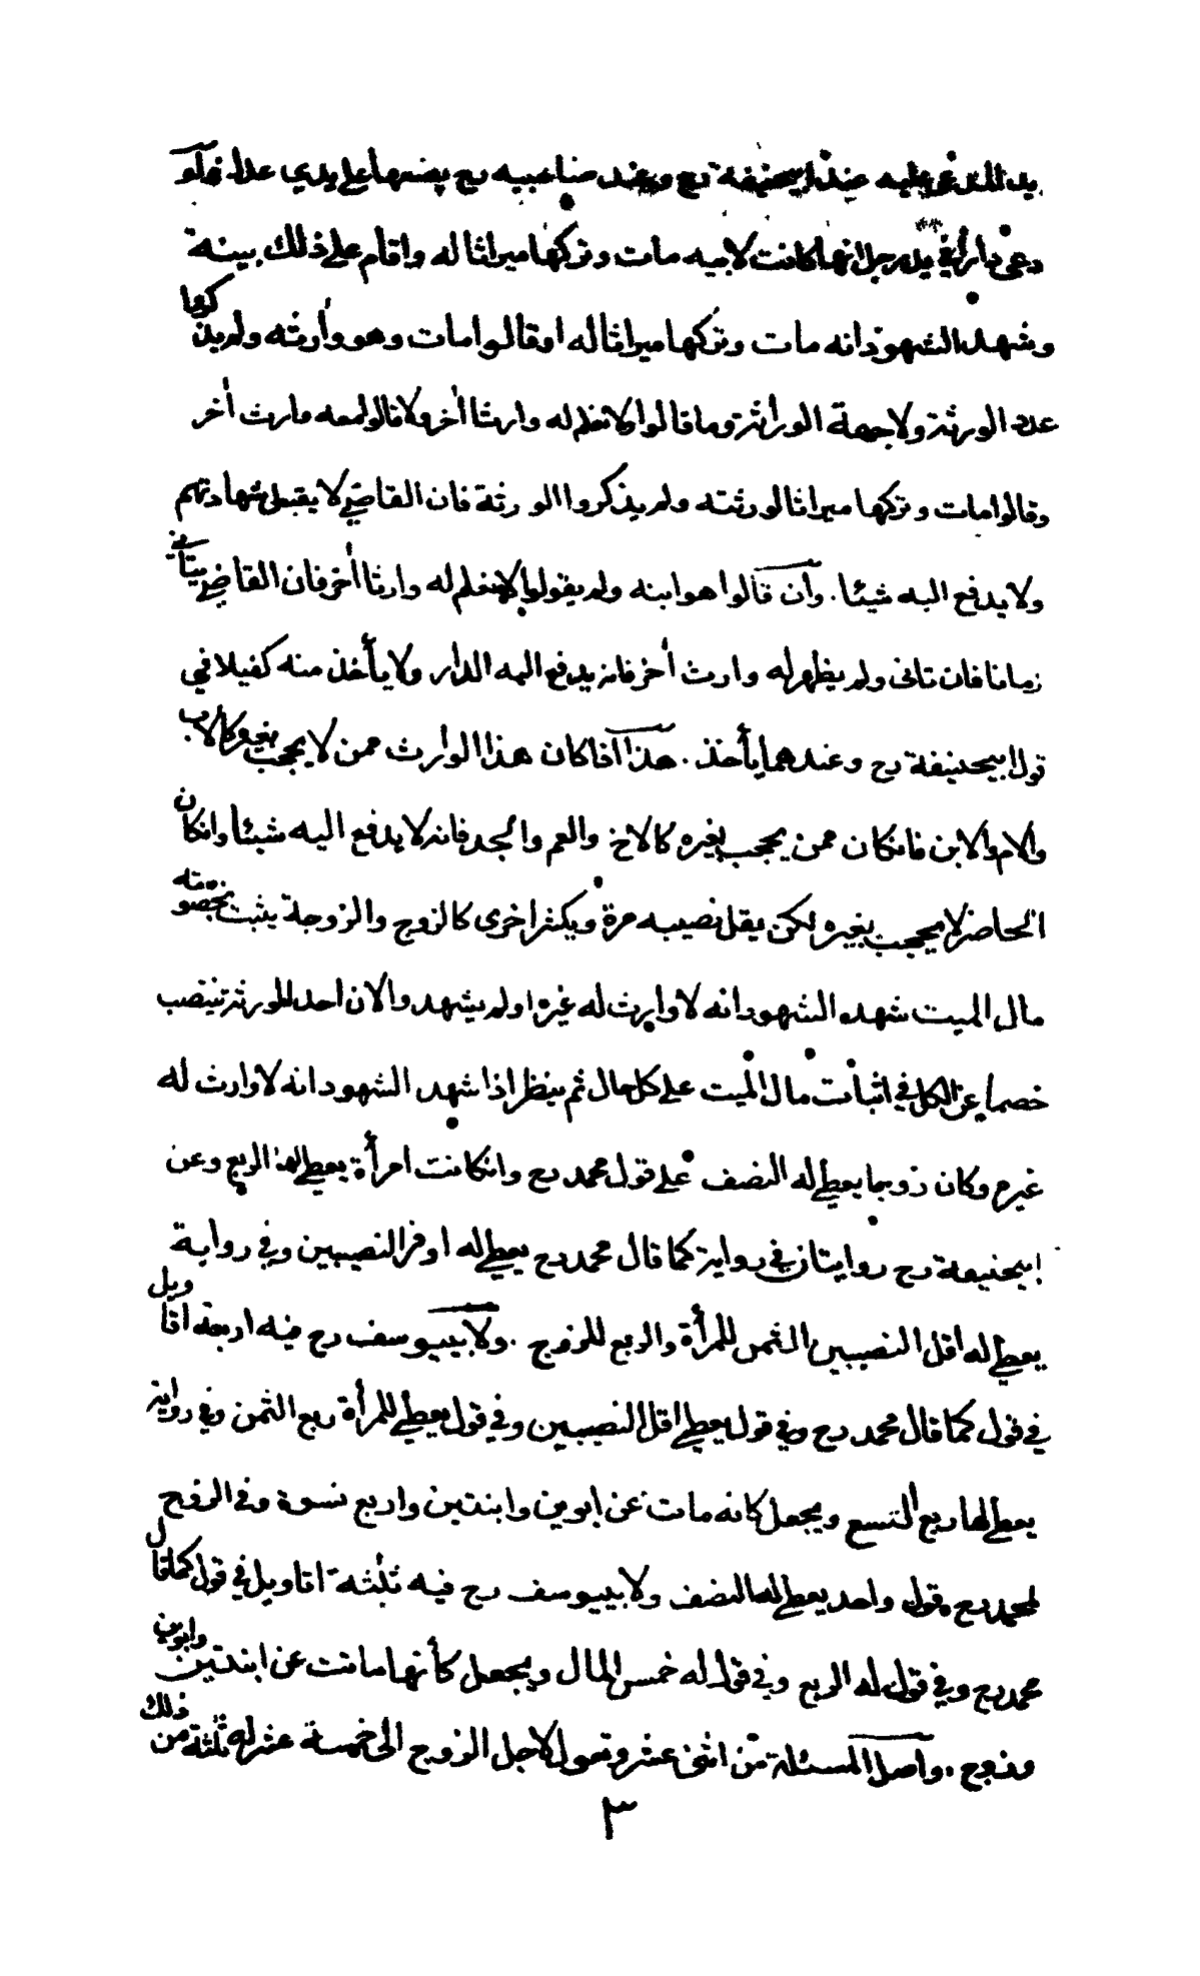 يد المدعى عليه عند ابيحنيفة رح وعند صاحبيه رح يضعها على يدي عدل ولو
دعى دارا في يد رجل انها كانت لابيه مات وتركها ميراثا له واقام على ذلك بينة
وشهد الشهود انه مات وتركها ميراثا له اوقالوا مات وهو وارثه ولم يذكروا
عدد الورثة ولا جهة الوراثة وما قالوا لا نعلم له وارثا اخر ولا قالوا معه وارث اخر
وقالوا مات وتركها ميراثا لورثته ولم يذكروا الورثة فان القاضي لا يقبل شهادتهم
ولا يدفع اليه شيئا . وان قالوا هو ابنه ولم يقولوا لا نعلم له وارثا اخر فان القاضي يتأني
زمانا فان تانى ولم يظهر له وارث اخر فانه يدفع اليه الدار ولا يأخذ منه كفيلا في
قول ابيحنيفة رح وعندهما يأخذ . هذا اذا كان هذا الوارث ممن لا يحجب بغيره كالاب
والام والابن فان كان ممن يحجب بغيره كالاخ والعم والجد فانه لا يدفع اليه شيئا وانكان
الحاضر لا يحجب بغيره لكن يقل نصيبه مرة ويكثر اخرى كالزوج والزوجة يثبت بخصومته
مال الميت شهد الشهود انه لا وارث له غيره اولم يشهد والان احد الورثة ينتصب
خصما عن الكل في اثبات مال الميت على كل حال ثم ينظر اذا شهد الشهود انه لا وارث له
غيره وكان زوجا يعطي له النصف على قول محمد رح وانكانت امرأة يعطي لها الربع وعن
ابيحنيفة رح روايتان في رواية كما قال محمد رح يعطي له اوفر النصيبين وفي رواية
يعطي له اقل النصيبين الثمن للمرأة والربع للزوج . ولابييوسف رح فيه اربعة اقاويل
في قول كما قال محمد رح وفي قول يعطي اقل النصيبين وفي قول يعطي للمرأة ربع الثمن وفي رواية
يعطي لها ربع التسع ويجعل كانه مات عن ابوين وابنتين واربع نسوة وفي الزوج
لمحمد رح قول واحد يعطي له النصف ولابييوسف رح فيه ثلثة اقاويل في قول كما قال
محمد رح وفي قول له الربع وفي قول له خمس المال ويجعل كأنها ماتت عن ابنتين وابوين
وزوج . واصل المسئلة من اثنى عشر وتعول لاجل الزوج الى خمسة عشر له ثلثة من ذلك
٣